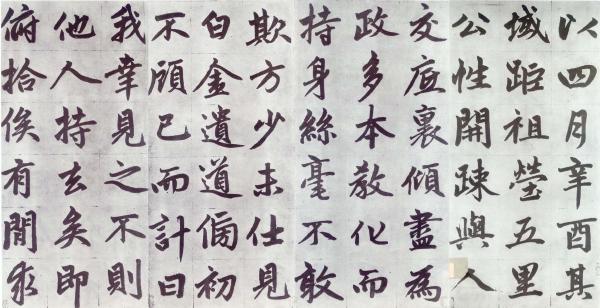 以四月辛酉其
域距祖塋五里
公性開疎與人
交底裏傾盡為
政多本教化而
持身絲毫不敢
欺方少未仕見
白金遺道傍初
不顧已而計曰
我幸見之不則
他人持去矣即
俯拾俟有閒求